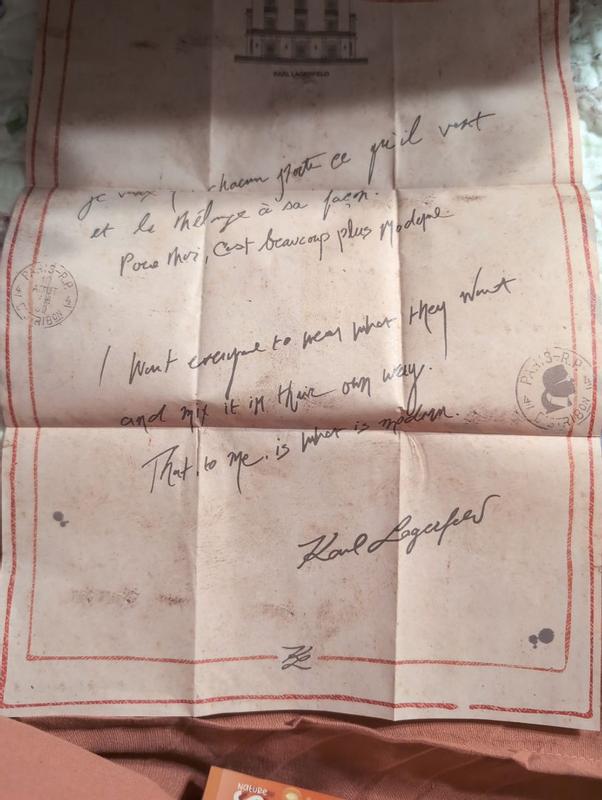 KARL LAGERFELD
je veux chacun porte ce qu'il veut
et le mélange à sa façon.
Pour moi, c'est beaucoup plus moderne.
I want everyone to wear what they want
and mix it in their own way.
That, to me, is what is modern.
PARIS-R.P.
PARIS-R.P.
Karl Lagerfeld
KL
NATURE